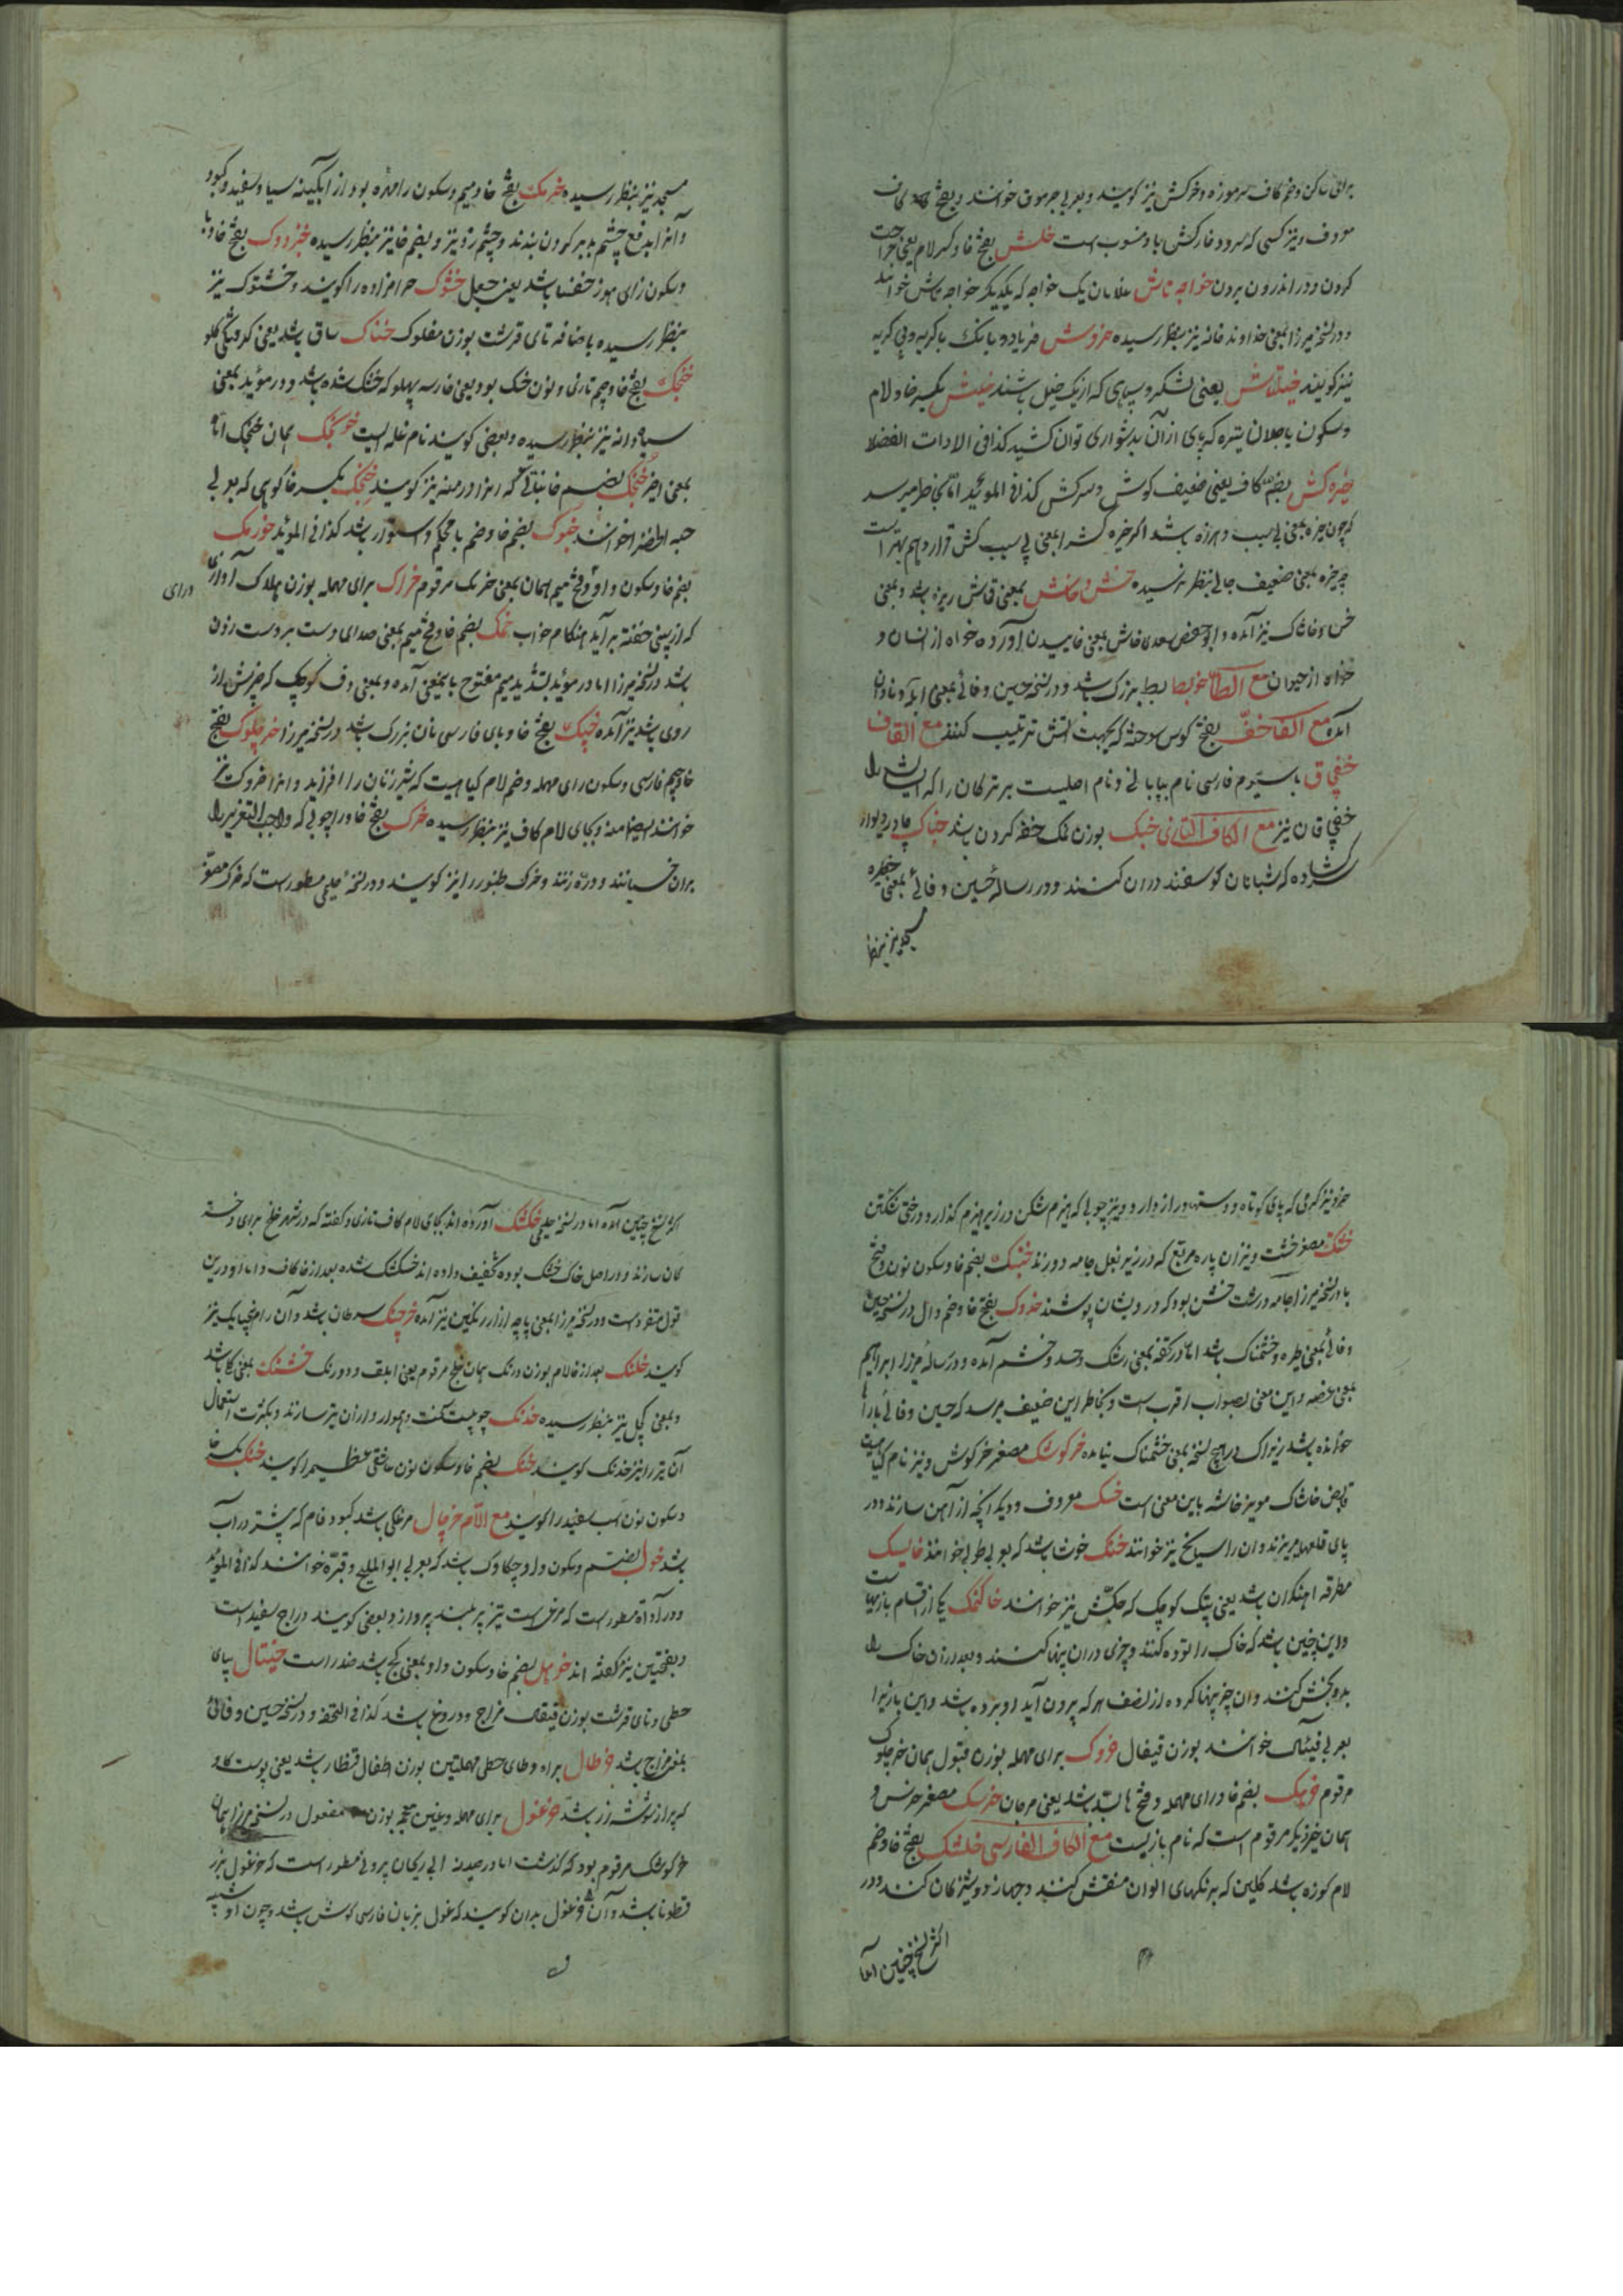 برای ساکن و ضم کاف سرموزه و خرکش نیز کویند و بعربی جرموق خوانند و بفتح کاف
معروف و نیز کسی که سرود خارکش باو منسوبست خلش بفتح خا و کسر لام یعنی جراحت
کردن و در اندرون بردن خواجه تاش غلامان یک خواجه که یکدیکر خواجه تاش خوانند
و در نسخه میرزا بمعنی خداوند خانه نیز بنظر رسیده خروش فریاد و بانک با کریه و بی کریه
نیز کویند خیلتاش یعنی لشکر و سپاهی که از یک خیل باشند خلیش بکسر خا و لام
و سکون یا جلان تیره که پای از آن بدشواری توان کشید کذا فی الادات الفضلا
خیره کش بضم کاف یعنی ضعیف کوش و سرکش کذا فی الموئید اما بخاطر میرسد
که چون خیره بمعنی بی سبب و هرزه باشد اکر خیره کش را بمعنی بی سبب کش قرار دهیم بهتر است
چه خیره بمعنی ضعیف جائی بنظر نرسیده خش و خاش بمعنی قاش ریزه باشد و بمعنی
خس و خاشاک نیز آمده و ابو حفص سعدی خاش بمعنی خاییدن آورده خواه از انسان و
خواه از حیوان مع الطا خربط بط بزرک باشد و در نسخه حسین وفائی بمعنی ابله و نادان
آمده مع الفا خف بفتح کوس سوخته که بجهت آتش ترتیب کنند مع القاف
خفچاق با سیوم فارسی نام بیابانی و نام اصلیست بر ترکان را که ایشان را
خفچاقان نیز مع الکاف التازی خبک بوزن نمک خفه کردن باشد خباک چادر دیوار
کشاده که شبانان کوسفند دران کنند و در رساله حسین وفائی بمعنی خظیره
مسجد نیز بنظر رسیده خرمک بفتح خا و میم و سکون را مهره بود از آبکینه سیاه و سفید و کبود
و آنرا بدفع چشم بد بر کردن بندند و چشم زد نیز و بضم خا نیز بنظر رسیده خبزدوک بفتح خا و با
و سکون زای هوز خنفسا باشد یعنی جعل خشوک حرامزاده را کویند و خشتوک نیز
بنظر رسیده باضافه تای قرشت بوزن مفلوک خناک ساق باشد یعنی کرفتکی کلو
خنجک بفتح خا و جیم تازی و نون خسک بود یعنی خار سه پهلو که خشک شده باشد و در موئید بمعنی
سیاه دانه نیز بنظر رسیده و بعضی کویند نام غله ایست خونجک همان خنجک اما
بمعنی اخیر خنجک بضم خا بنائی که انرا درمنه نیز کویند خنجک بکسر خا کوهی که بعربی
حبه الخضرا خوانند خبوک بضم خا و ضم با محکم و استوار باشد کذا فی الموئید خورمک
بضم خا و سکون واو و فتح میم همان بمعنی خرمک مرقوم خراک برای مهمله بوزن هلاک آوازی
درای
که از بینی خفته برآید هنکام خواب خمک بضم خا و فتح میم بمعنی صدای دست بر دست زدن
باشد در نسخه میرزا اما در موئید بتشدید میم مفتوح بایمعنی آمده و بمعنی دف کوچک که چنبرش از
روی باشد نیز آمده خپک بفتح خا و بای فارسی نان بزرک باشد در نسخه میرزا خرچلوک بفتح
خا و جیم فارسی و سکون رای مهمله و ضم لام کیاهیست که شیر زنان را افزاید و انرا خروک نیز
خوانند و بجای لام کاف نیز بنظر رسیده خرک بفتح خا و را چوبی که واجب التعزیر را
بران خسبانند و دره زنند و خرک طنبور را نیز کویند و در نسخه حلیمی مسطور است که خرک مصغر
خر و نیز کرکی که پای کوتاه و دستها دراز دارد و نیز چوبی که هیزم شکن در زیر هیزم کذارد و رختی شکتن
خشتک مصغر خشت و نیز ان پاره مربع که در زیر بغل جامه دوزند خنبک بضم خا و سکون نون و فتح
با در نسخه میرزا جامه درشت خشن بود که درویشان پوشند خدوک بفتح خا و ضم دال در نسخه حسین
وفائی بمعنی طیره و خشمناک باشد اما در تحفه بمعنی رشک و حسد و خشم آمده و در رساله میرزا ابراهیم
بمعنی غصه و این معنی بصواب اقرب است و بخاطر این ضعیف میرسد که حسین وفائی بارا
خوانده باشد زیراک در هیچ نسخه بمعنی خشمناک نیامده خرکوشک مصغر خرکوش و نیز نام کیاهیست
قابض خاشاک مویز خاشه باین معنی است خسک معروف و دیکر آنچه از آهن سازند و در
پای قلعها ریزند و ان را سیخ نیز خوانند خنک خوش باشد که بعربی طوبی خوانند خایسک
مطرقه اهنکران باشد یعنی پتک کوچک که چکش نیز خوانند خاکنمک یکی از اقسام بازیهاست
و این چنین باشد که خاک را توده کنند و چیزی دران پنهان کنند و بعد ازان خاک را
بدو بخش کنند و ان چیز پنهان کرده از نصف هر که بیرون آید او برده باشد و این بازی را
بعربی فیئال خوانند بوزن قیفال خروک برای مهمله بوزن قبول همان خرچلوک
مرقوم خرمک بضم خا و رای مهمله و فتح ها بسد باشد یعنی مرجان خرسک مصغر خرس و
همان خیز دیکر مرقوم است که نام بازیست مع الکاف الفارسی خلشک بفتح خا و ضم
لام کوزه باشد کلین که برنکهای الوان منقش کنند و جهاز دوشیزکان کنند و در
اکثر نسخ چنین آمده
اکثر نسخ چنین آمده اما در نسخه حلیمی خکشک آورده اند بجای لام کاف تازی و کفته که در شهر خلخ برای دختر
کان سازند و در اصل خاک خشک بوده تخفیف داده اند خکشک شده بعد از خا کاف و اما او درین
قول متفرد است و در نسخه میرزا بمعنی پاچه ازار رنکین نیز آمده خرچنک سرطان باشد و آن را پنجپایک نیز
کویند خلنک بعد از خا لام بوزن درنک همان خلنج مرقوم یعنی ابلق و دو رنک خشنک بمعنی کل باشد
و بمعنی کچل نیز بنظر رسیده خدنک چوبیست سخت و هموار و ازان تیر سازند و بکثرت استعمال
آن تیر را نیز خدنک کویند خنک بضم خا و سکون نون عاشقی عظیم را کویند خنک بکسر خا
و سکون نون اسب سفید را کویند مع اللام خرچال مرغکی باشد کبود فام که بیشتر در آب
باشد خول بضم و سکون واو چکاوک باشد که بعربی ابو الملیح و قبره خوانند کذا فی الموئید
و در اداة مسطور است که مرغیست تیزپر بلند پرواز و بعضی کویند دراج سفید است
و بفتحتین نیز کفته اند خوهل بضم خا و سکون واو بمعنی کج باشد ضد راست خیتال بیای
حطی و تای قرشت بوزن قیقال مزاح و دروغ باشد کذا فی التحفه و در نسخه حسین وفائی
بمعنی مزاح باشد خرطال براء و طای حطی مهملتین بوزن اطفال قنطار باشد یعنی پوست کاو
که پر از نوشته زر باشد خرغول برای مهمله و غین معجمه بوزن مفعول در نسخه میرزا همان
خرکوشک مرقوم بود که کذشت اما در صیدنه ابی ریحان بیرونی مسطور است که خرغول بزر
قطونا باشد و آن را خرغول بدان کویند که غول بزبان فارسی کوش باشد و چون او شبیه